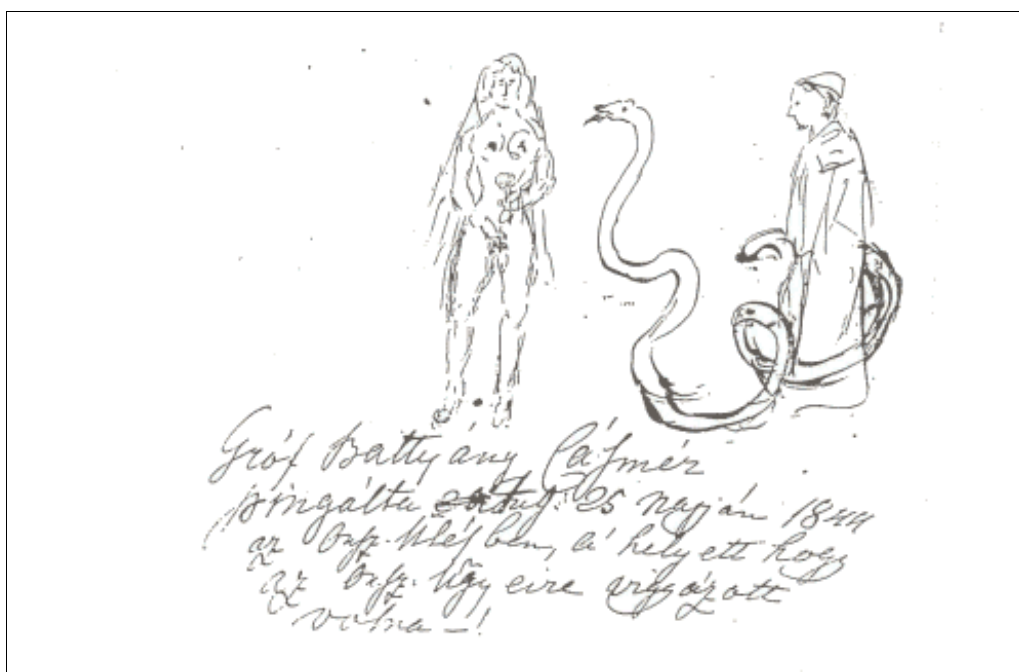 Gróf Battyány Cásmér
pingálta Aug: 25 napján 1844
az Orsz. Ülésben, a' helyett hogy
az Orsz. Ügyeire vigyázott
volna –!